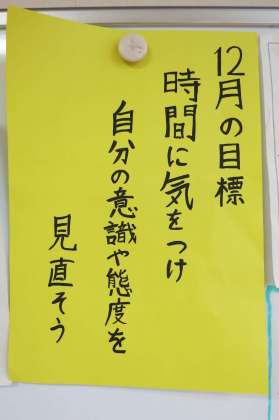 12月の目標
時間に気をつけ
自分の意識や態度を
見直そう